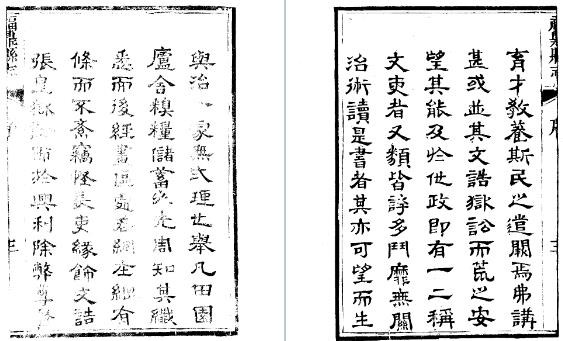 育才教養斯民之道闕焉弗講
甚或並其文誥獄訟而荒之安
望其能及於世政即有一二稱
文吏者又類皆誇多鬥靡無關
治術讀是書者其亦可望而生
序
三
與治一家無弍理也舉凡田園
廬舍糗糧儲蓄必先周知其纖
悉而後經畫區處若網在綱有
條而不紊竊怪長吏緣飾文誥
張皇於興利除弊
三